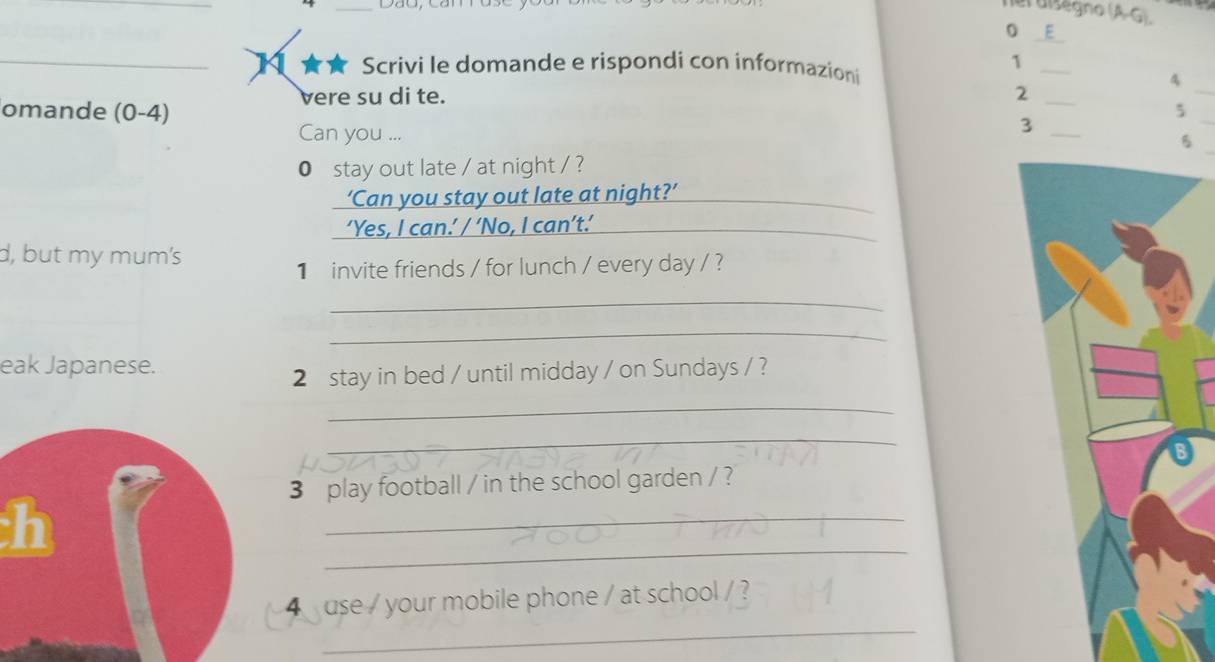 omande (0-4)
d, but my mum's
eak Japanese.
ch
11 ★★ Scrivi le domande e rispondi con informazioni
vere su di te.
Can you ...
0 stay out late / at night / ?
'Can you stay out late at night?'
'Yes, I can.' / 'No, I can't.'
1 invite friends / for lunch / every day / ?
2 stay in bed / until midday / on Sundays / ?
3 play football / in the school garden / ?
4 use / your mobile phone / at school / ?
disegno (A-G).
0 E
1
2
3
4
5
6
B